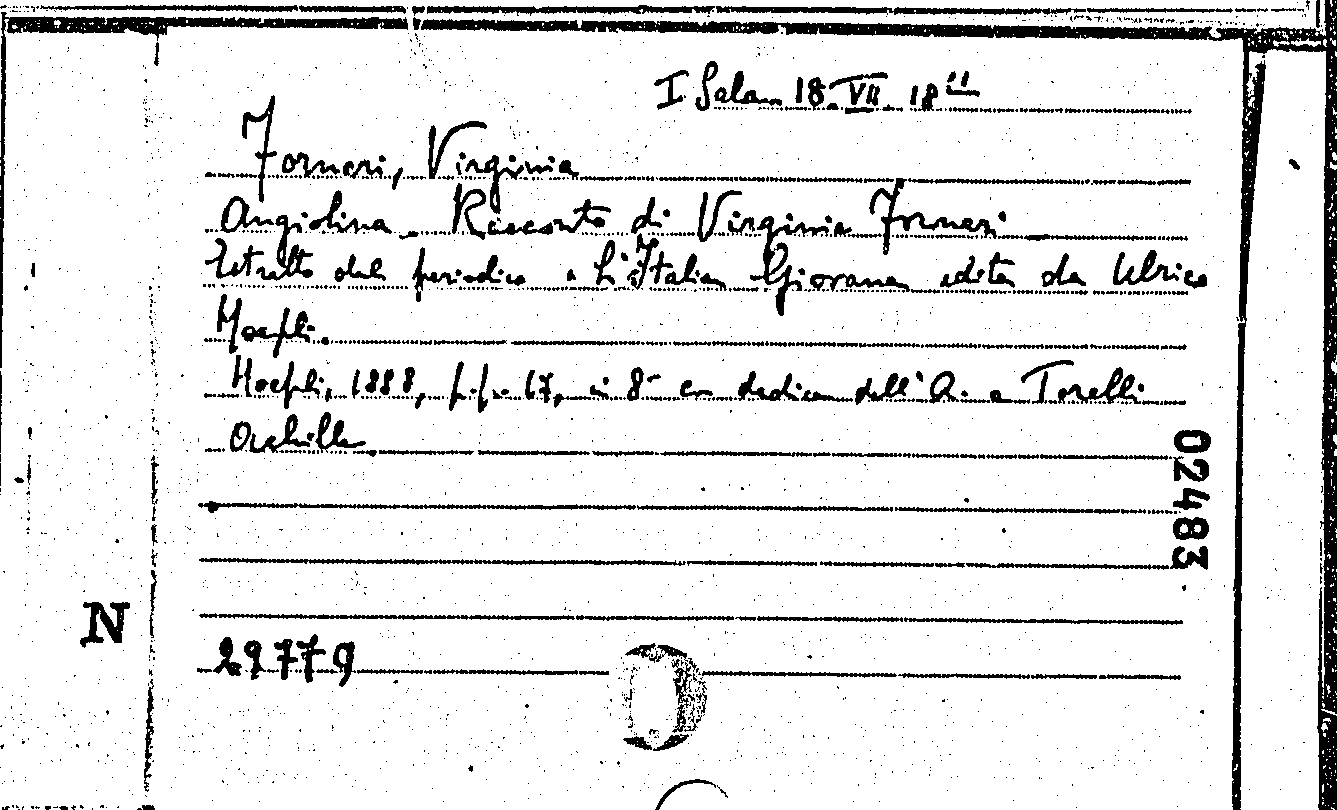 I Sala 18. VII. 18 11
Forneri, Virginia
Angiolina. Racconto di Virginia Forneri
Estratto dal periodico "L'Italia Giovane edita da Ulrico
Hoepli.
Hoepli, 1888, p.p. 67, in 8° con dedica dell'A. a Torelli
Achille.
02483
N
29779